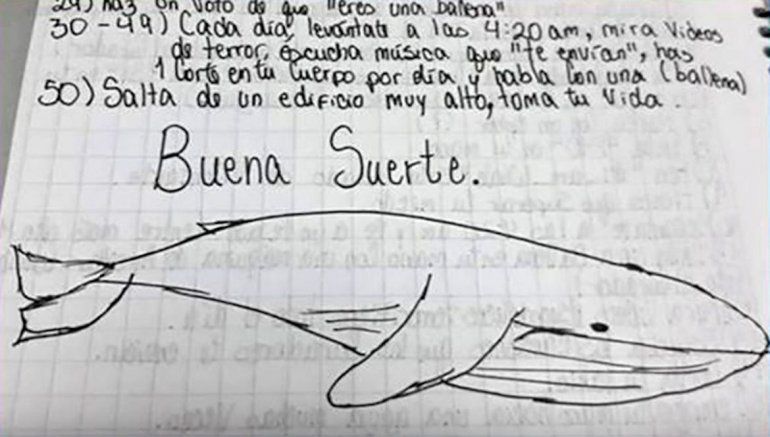 29) haz un voto de que "eres una ballena"
30-49) Cada día, levántate a las 4:20am, mira videos
de terror, escucha música que "te envían", has
1 corte en tu cuerpo por día y habla con una (ballena)
50) Salta de un edificio muy alto, toma tu vida.
Buena Suerte.